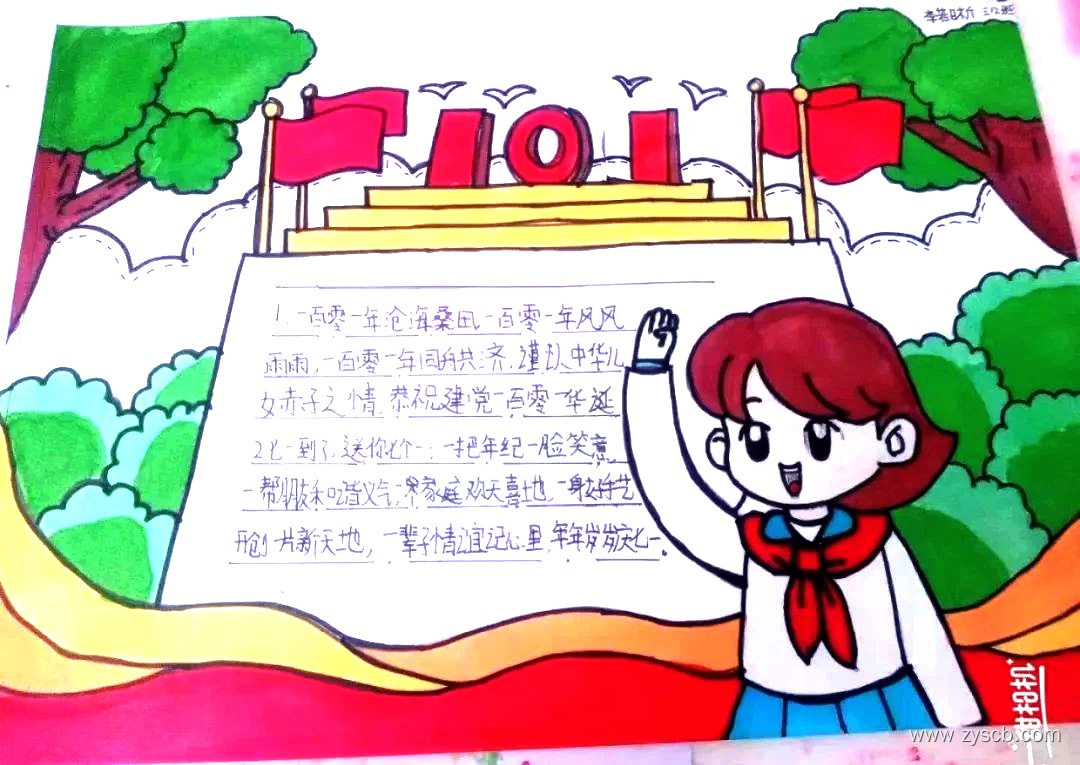 101
1、一百零一年沧海桑田,一百零一年风风
雨雨,一百零一年同舟共济,谨以中华儿
女赤子之情,恭祝建党一百零一华诞
2七一到了,送你七个一:一把年纪一脸笑意,
一帮朋友和谐义气,一家家庭欢天喜地,一身好手艺
开创一片新天地,一辈子情谊记心里,年年岁岁庆七一。
www.zyscb.com